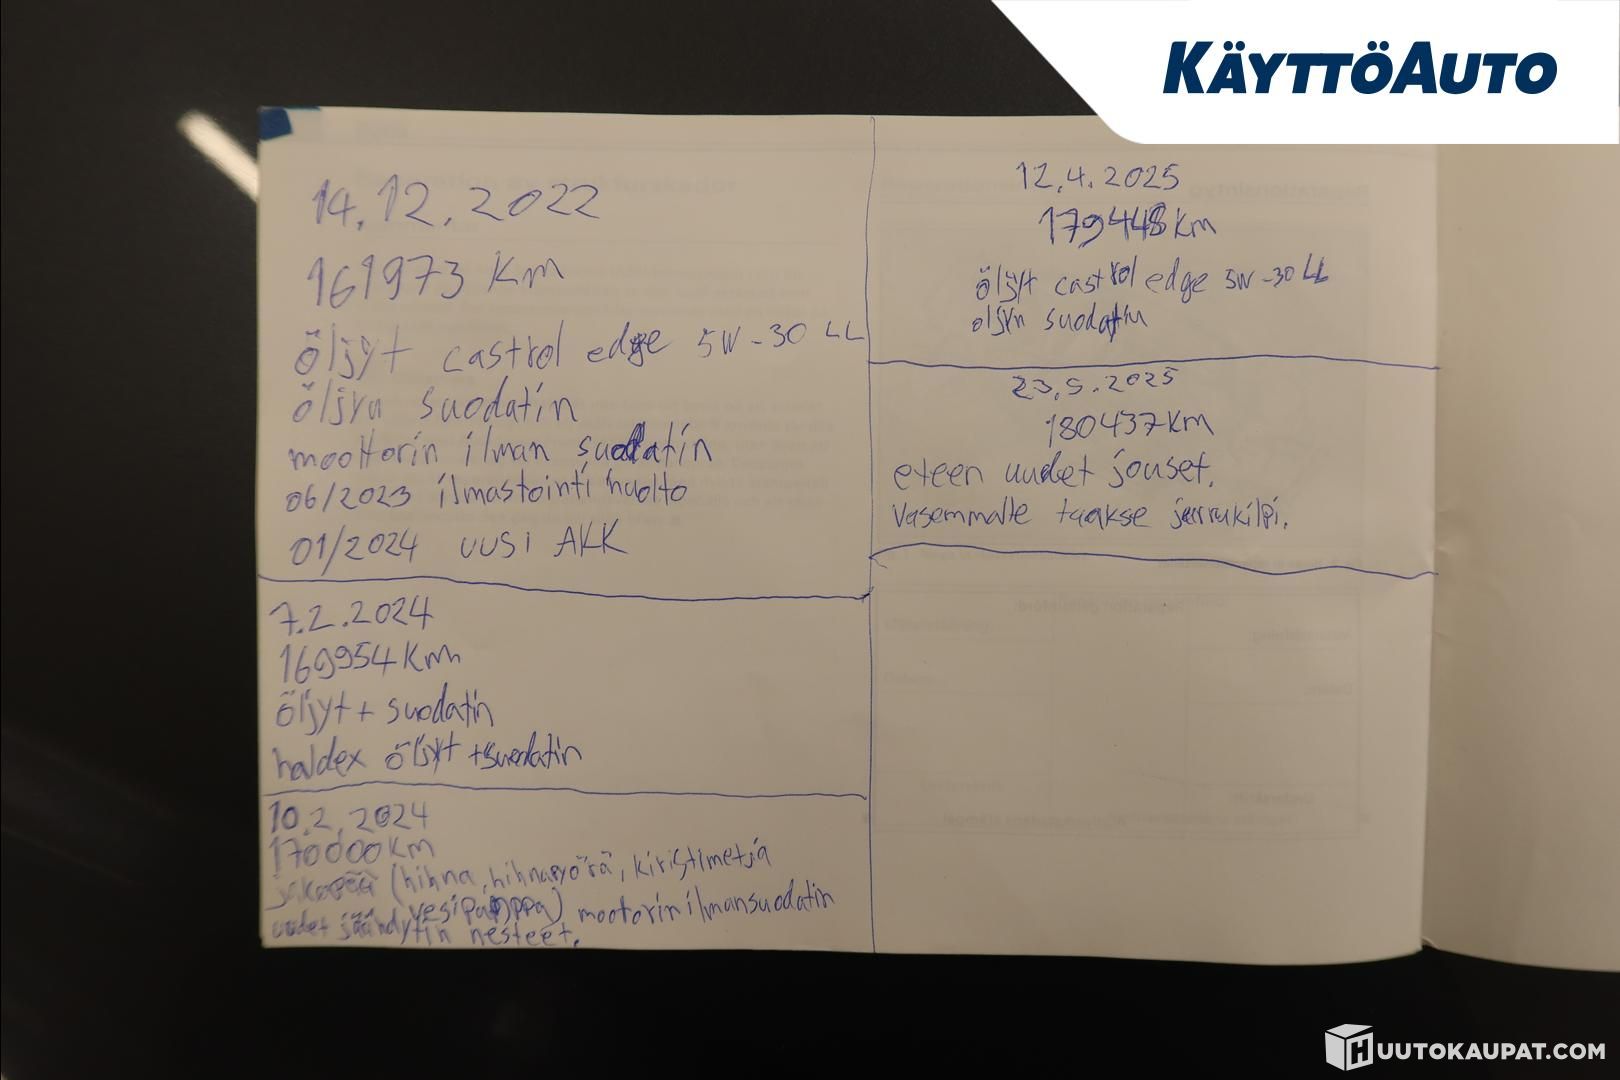 KÄYTTÖAUTO
14.12.2022
161973 km
öljyt castrol edge 5W-30 LL
öljyn suodatin
moottorin ilman suodatin
06/2023 ilmastointi huolto
01/2024 uusi AKK
7.2.2024
169954 km
öljyt + suodatin
haldex öljyt + suodatin
10.2.2024
170000 km
jakopää (hihna, hihnapyörä, kiristimetjä
vesipamppa) mootorin ilmansuodatin
uudet jäähdytin nesteet.
12.4.2025
179448 km
öljyt castrol edge 5W-30 LL
oljyn suodatin
23.5.2025
180437 km
eteen uudet jouset.
Vasemmalle taakse jarrukilpi.
HUUTOKAUPAT.COM